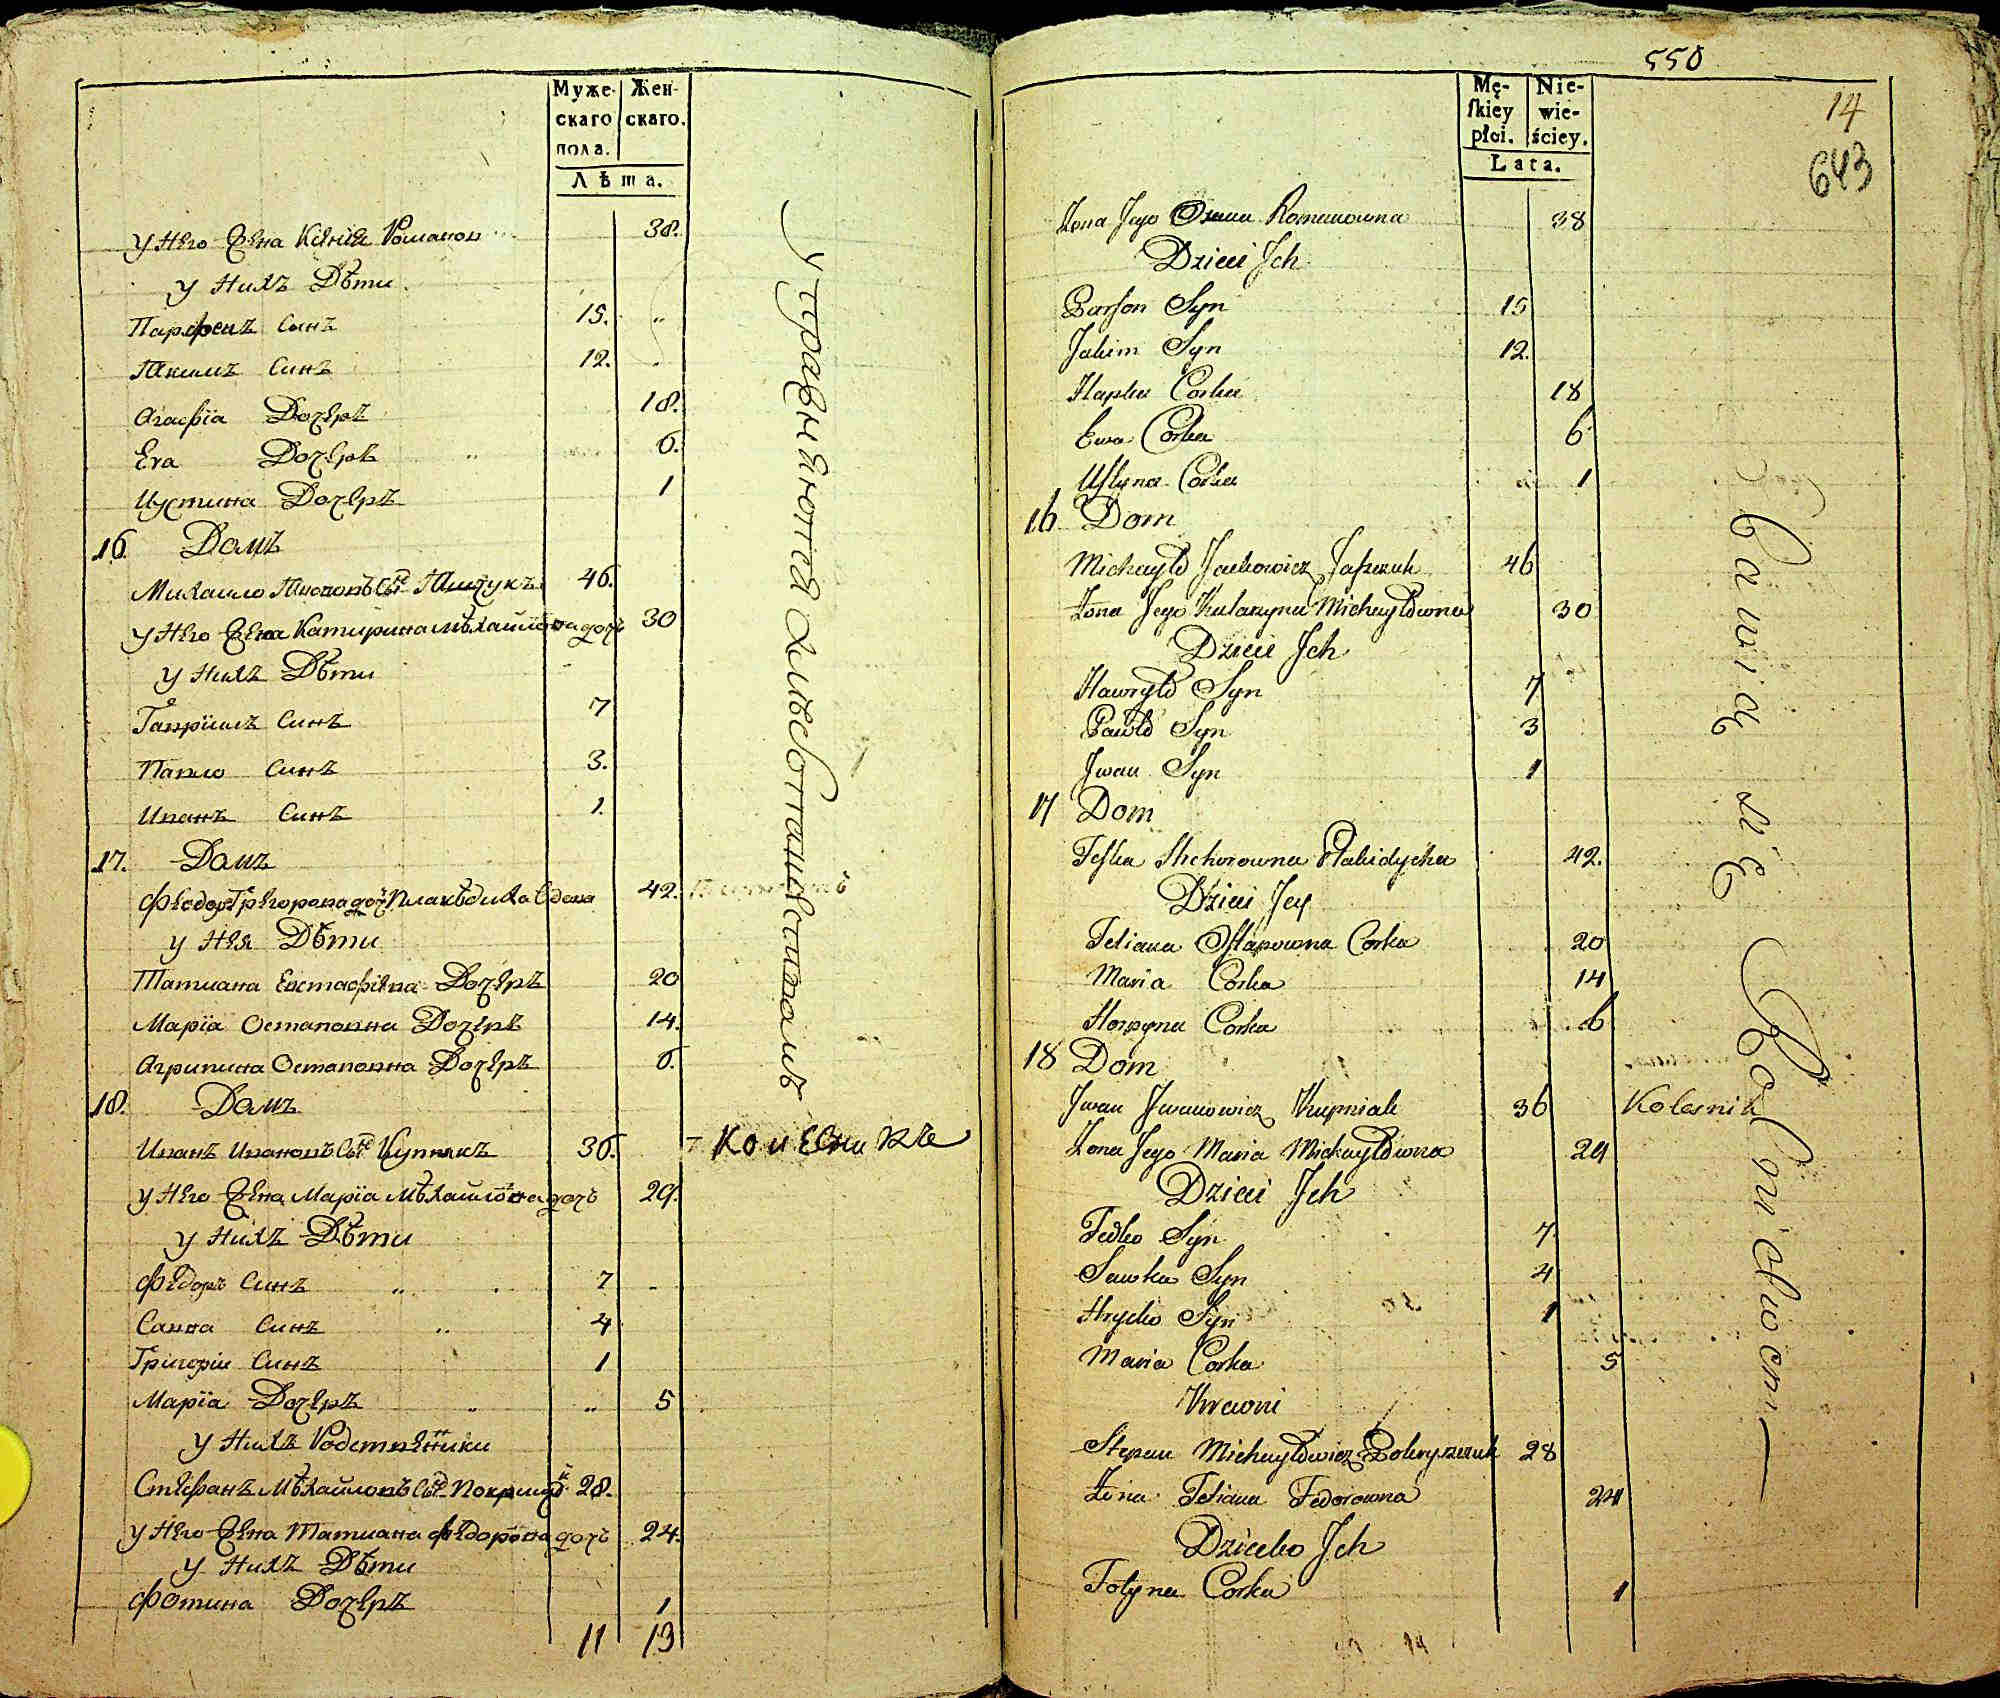 Муже- Жен-
скаго скаго.
пола.
Лѣта.
у него жена Ксенія Романов 38.
у нихъ Дѣти
Парфенъ Синъ 15.
Якимъ Синъ 12.
Агафія Дочерь 18.
Ева Дочерь 6.
Иустина Дочерь 1
16 Домъ
Михаило Якововъ Сынъ Яшчукъ 46.
у него жена Катирина Михайлова дочь 30
у нихъ Дѣти
Гавріилъ Синъ 7
Павло Синъ 3.
Иванъ Синъ 1.
17. Домъ
Феодора Грегорова доч Плаквдиха вдова 42.
у нея Дѣти
Татиана Евстафіевна Дочерь 20
Марія Остаповна Дочерь 14.
Агрипина Остаповна Дочерь 6.
18. Домъ
Иванъ Ивановъ Сынъ Купнякъ 36.
у него жена Марія Михайлова дочь 29.
у нихъ Дѣти
Федоръ Синъ 7
Савва Синъ 4
Григорій Синъ 1
Марія Дочерь 5
у нихъ Родственники
Стефанъ Михайловъ Сынъ 28.
у него жена Татиана Федорова дочь 24.
у нихъ Дѣти
Фотина Дочерь 1
11 13
упражняются хлѣбопашествомъ
колесникъ
550
14
643
Mę- Nie-
skiey wie-
płci. ściey.
Lata.
Żona Jego Romanowna 38
Dzieci Jch
Parfon Syn 15
Jakim Syn 12.
Hapka Corka 18
Ewa Corka 6
Ustyna Corka 1
16 Dom
Michayło Jackowicz Jaszczuk 46
Żona Jego Katarzyna Michayłowna 30
Dzieci Jch
Hawryło Syn 7
Pawło Syn 3
Jwan Syn 1
17 Dom
Teska Hrehorowna Plakidycha 42.
Dzieci Jey
Teliana Ostapowna Corka 20
Maria Corka 14
Horpyna Corka 6
18 Dom
Jwan Jwanowicz Kupniak 36 Kolesnik
Żona Jego Maria Michayłowna 29
Dzieci Jch
Fedko Syn 7
Sawka Syn 4
Hrycko Syn 1
Maria Corka 5
Krewni
Stepan Michayłowicz Pokryszczuk 28
Żona Teliana Fedorowna 24
Dziecko Jch
Fotyna Corka 1
Bawią się Rolnictwem